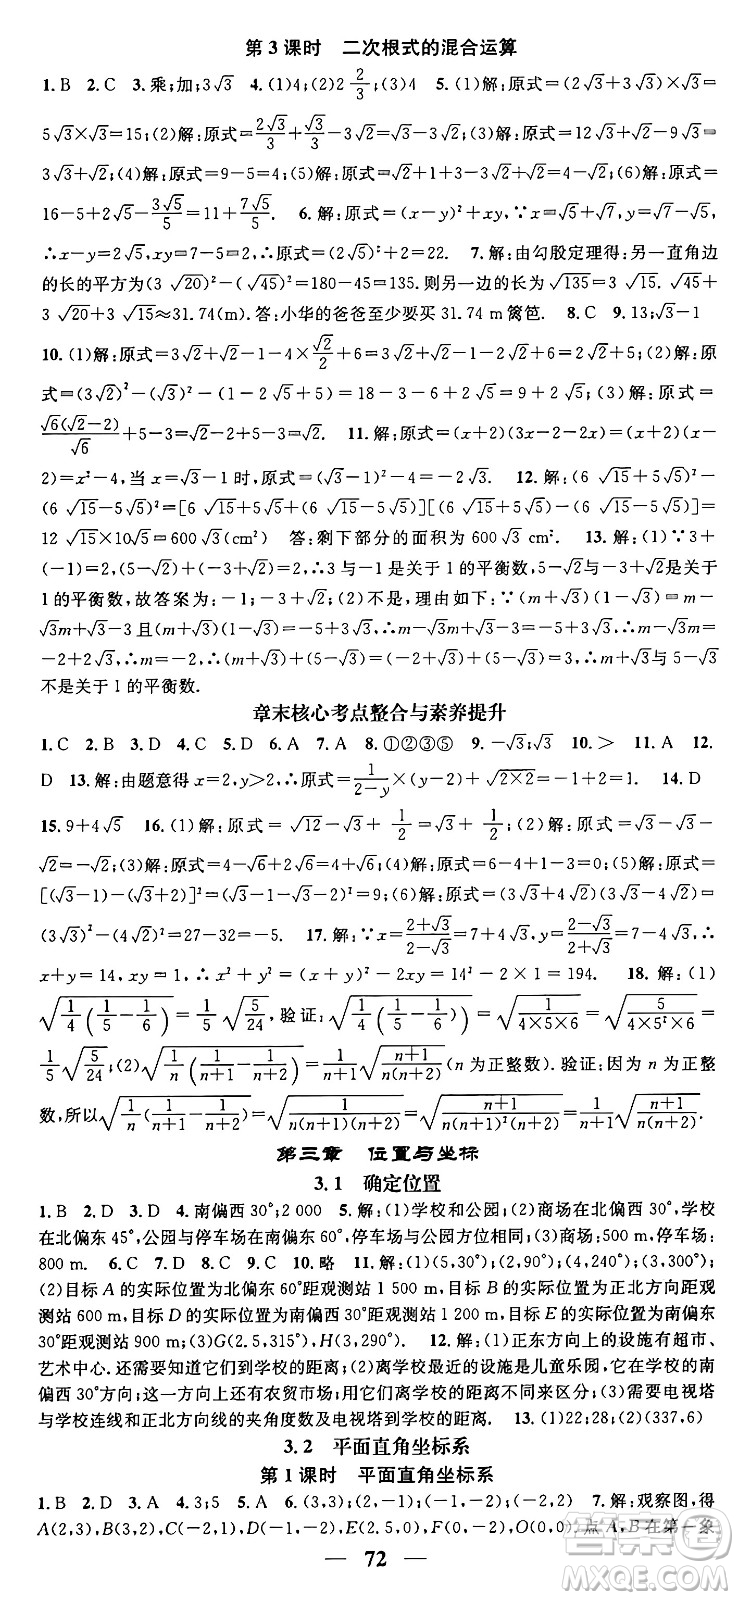 第3课时 二次根式的混合运算
1.B 2.C 3.乘;加;3√3 4.(1)4;(2)2√(2/3);(3)4 5.(1)解:原式=(2√3+3√3)×√3=
5√3×√3=15;(2)解:原式=2√3/3+√3/3-3√2=√3-3√2;(3)解:原式=12√3÷4√3=
3√3+√2;(4)解:原式=9-5=4;(5)解:原式=2+√2-2+2√2=4-√2;(6)解:原式=
16-5+2√5-3√5/5=11+7√5/5. 6.解:原式=(x-y)²+xy,∵x=√7+√5,y=√7-√5,
∴x-y=2√5,xy=7-5=2,∴原式=(2√5)²+2=22. 7.解:由勾股定理得:另一直角边
的长的平方为(3√20)²-(√45)²=180-45=135.则另一边的长为√135=3√15.√45+
3√20+3√15≈31.74(m).答:小华的爸爸至少要买31.74 m篱笆. 8.C 9.13;√3-1
10.(1)解:原式=3√2+√2-1-4×√2/2+6=2√2+5;(2)解:原
√6(√2-2)/√6+5-3=√2-2+2=√2. 11.解:原式=(x+2)(3x-2-2x)=(x+2)(x-
2)=x²-4,当x=√3-1时,原式=(√3-1)²-4=-2√3. 12.解:(6√15+5√5)²-
(6√15-5√5)²=[6√15+5√5+(6√15-5√5)][(6√15+5√5)-(6√15-5√5)]=
12√15×10√5=600√3(cm²) 答:剩下部分的面积为600√3 cm². 13.解:(1)∵3+
(-1)=2,(5-√2)+(-3+√2)=2,∴3与-1是关于1的平衡数,5-√2与-3+√2是关于
1的平衡数,故答案为:-1;-3+√2;(2)不是.理由如下:∵(m+√3)×(1-√3)=m-
√3m+√3-3且(m+√3)(1-√3)=-5+3√3,∴m-√3m+√3-3=-5+3√3,∴m-√3m=
-2+2√3,即m(1-√3)=-2(1-√3),∴m=-2,∴(m+√3)+(5-√3)=3,∴-2+√3与5-√3
不是关于1的平衡数.
章末核心考点整合与素养提升
1.C 2.B 3.D 4.A 5.D 6.A 7.A 8.①②③⑤ 9.-√3;√3 10.> 11.A 12.
D 13.解:由题意得x=2,y>2,∴原式=1/(2-y)×(y-2)+√(2×2)=-1+2=1. 14.D
15.9+4√5 16.(1)解:原式=√12-√3+√(1/2)=√3+√(1/2);(2)解:原式=√3-
√2-√3=-√2;(3)解:原式=4-√6+2√6=4+√6;(4)解:原式=6-4+1-3=0;(5)解:原式=
[(√3-1)-(√3+2)]²=(-3)²=9;(6)解:原式=(3√3+4√2)×(3√3-4√2)=
(3√3)²-(4√2)²=27-32=-5. 17.解:∵x=(2+√3)/(2-√3)=7+4√3,y=(2-√3)/(2+√3)=7-4√3,∴
x+y=14,xy=1,∴x²+y²=(x+y)²-2xy=14²-2×1=194. 18.解:(1)
√(1/4(1/5-1/6))=1/5√(5/24),验证:√(1/4(1/5-1/6))=√(1/(4×5×6))=√(5/(4×5²×6))=
1/5√(5/24);(2)√(1/n(1/(n+1)-1/(n+2)))=1/(n+1)√((n+1)/(n(n+2)))(n为正整数).验证:因为n为正整
数,所以√(1/n(1/(n+1)-1/(n+2)))=√(1/(n(n+1)(n+2)))=√((n+1)/(n(n+1)²(n+2)))=1/(n+1)√((n+1)/(n(n+2))).
第三章 位置与坐标
3.1 确定位置
1.B 2.D 3.D 4.南偏西30°;2 000 5.解:(1)学校和公园;(2)商场在北偏西30°,学校
在北偏东45°,公园与停车场在南偏东60°,停车场与公园方位相同;(3)商场:500 m,停车场:
800 m. 6.C 7.D 8.C 9.C 10.略 11.解:(1)(5,30°);(2,90°);(4,240°);(3,300°);
(2)目标A的实际位置为北偏东60°距观测站1 500 m,目标B的实际位置为正北方向距观
测站600 m,目标D的实际位置为南偏西30°距观测站1 200 m,目标E的实际位置为南偏东
30°距观测站900 m;(3)G(2.5,315°),H(3,290°). 12.解:(1)正东方向上的设施有超市、
艺术中心.还需要知道它们到学校的距离;(2)离学校最近的设施是儿童乐园,在学校的南
偏西30°方向;在这一方向上还有农贸市场;(3)需要电视塔
与学校连线和正北方向线的夹角度数及电视塔到学校的距离. 13.(1)22;28;(2)(337,6)
3.2 平面直角坐标系
第1课时 平面直角坐标系
1.B 2.D 3.A 4.3;5 5.A 6.(3,3);(2,-1);(-1,-2);(-2,2) 7.解:观察图,得
A(2,3),B(3,2),C(-2,1),D(-1,-2),E(2.5,0),F(0,-2),O(0,0);点A,B在第一象
72
答案圈
MXQE.COM